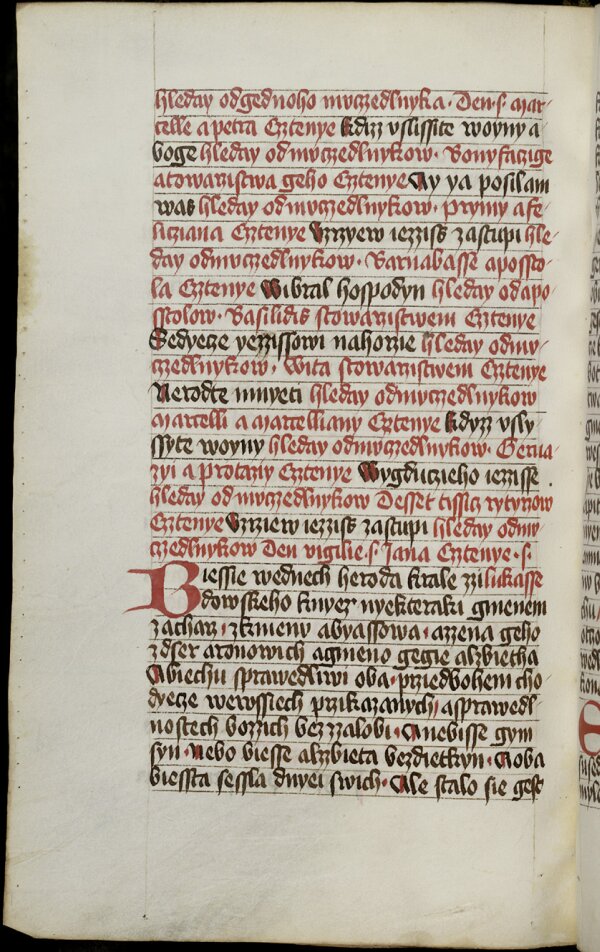 hleday odgednoho muczedlnyka · Den · s · mar-
celle a petra Cztenye kdiz uslissite woyny a
boge hleday od muczedlnykow · Bonyfaczige
a towarzistwa geho Cztenye Ay ya posilam
was hleday od muczedlnykow · prymy a fe-
liciana Cztenye Vzrzyew iezziss zastupi hle-
day od muczedlnykow · Barnabasse apossto-
la Cztenye Wibral hospodyn hleday od apo-
sstolow · Basilidis stowarzistwem Cztenye
Sedyecze yezzissowi nahorzie hleday od mu-
czedlnykow · Wita stowarzistwem Cztenye
Nerodte mnyeti hleday od muczedlnykow
Marcelli a marcelliany Cztenye kdyzz usly-
ssyte woyny hleday od muczedlnykow · Gerua-
zyi a protazy Cztenye Wygduczieho iezzisse
hleday od muczedlnykow Desset tissicz rytyrzow
Cztenye Vzrziew iezziss zastupi hleday od mu-
czedlnykow Den vigilie · s · Jana Cztenye · s ·
Biessie wednech heroda krale zzi likasse
dowskeho knyez nyekteraki gmenem
zacharz · zkmeny abyassowa · azzena geho
zdser aronowich a gmeno gegie alzbietha
Abiechu sprawedliwi oba · przedbohem cho-
dyecze wewssiech przikazanych · a sprawedl-
nostech bozzich bez zzalobi · Anebisse gym
syn · Nebo biesse alzbieta bezdietkyn · A oba
biessta sessla dnyei swich · Ale stalo sie gest